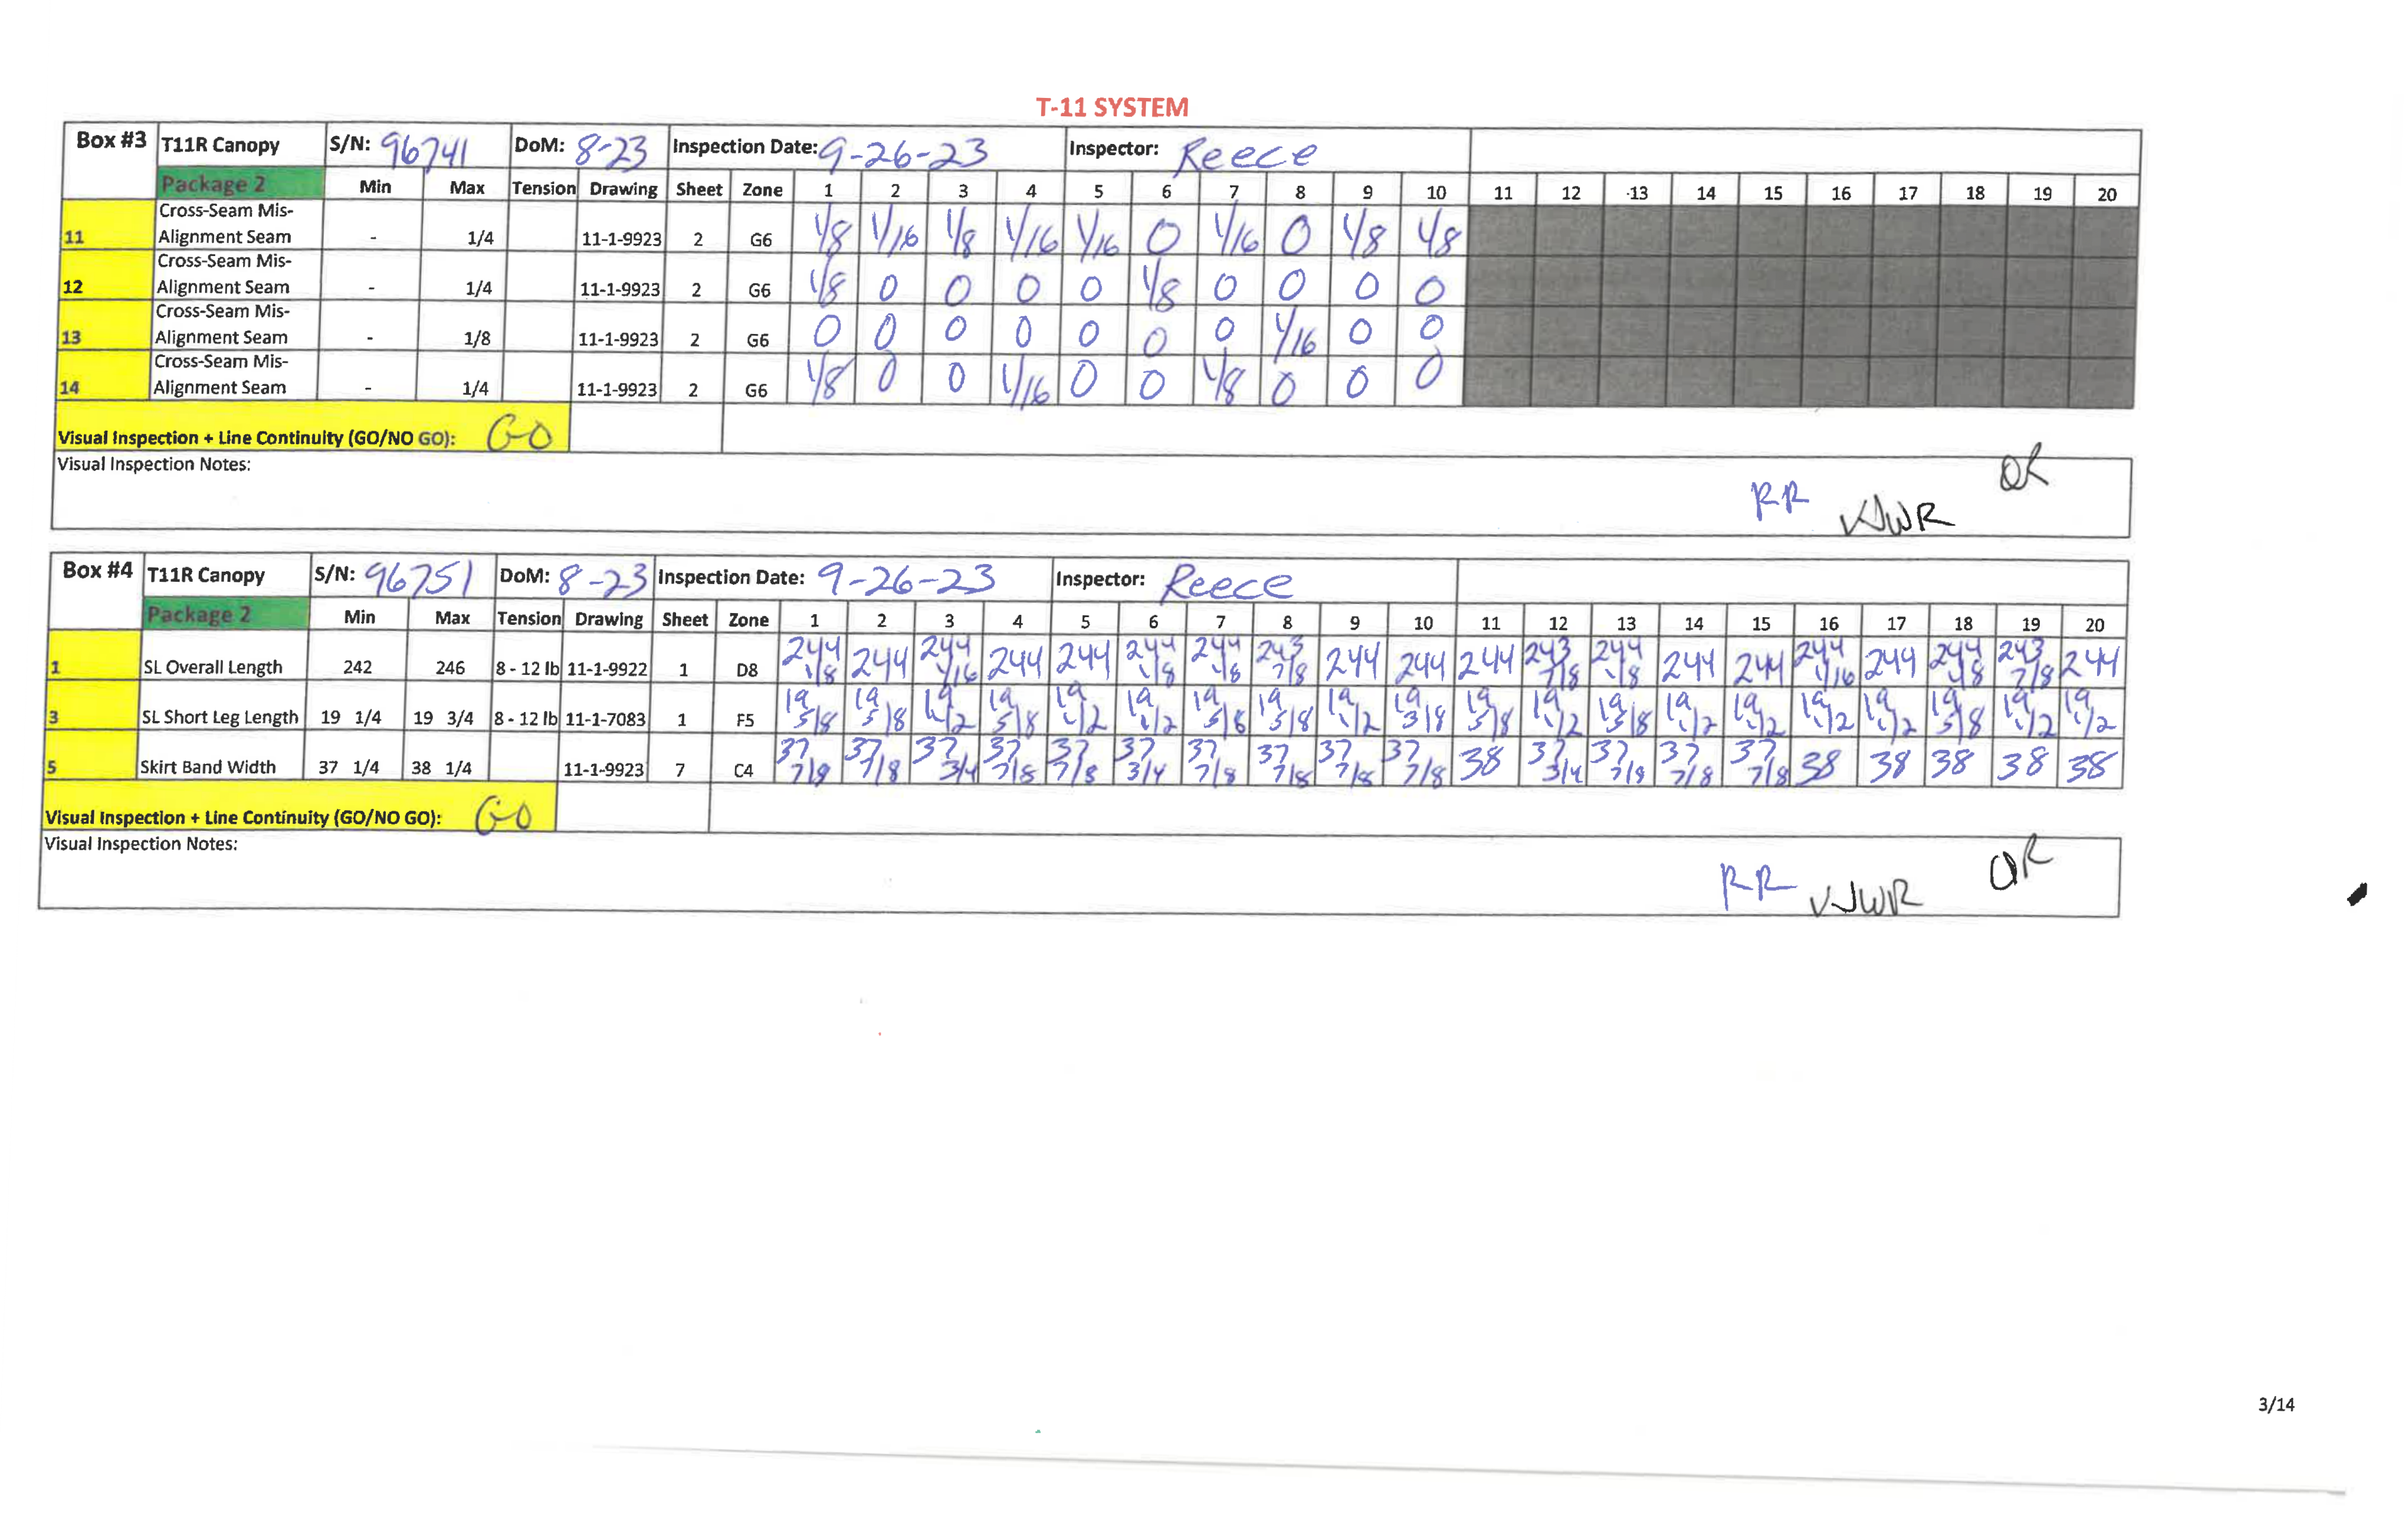 T-11 SYSTEM
Box #3 T11R Canopy S/N: 96741 DoM: 8-23 Inspection Date: 9-26-23 Inspector: Reece
Package 2 Min Max Tension Drawing Sheet Zone 1 2 3 4 5 6 7 8 9 10 11 12 13 14 15 16 17 18 19 20
Cross-Seam Mis-
11 Alignment Seam - 1/4 11-1-9923 2 G6 1/8 1/16 1/8 1/16 1/16 0 1/16 0 1/8 1/8
Cross-Seam Mis-
12 Alignment Seam - 1/4 11-1-9923 2 G6 1/8 0 0 0 0 1/8 0 0 0 0
Cross-Seam Mis-
13 Alignment Seam - 1/8 11-1-9923 2 G6 0 0 0 0 0 0 0 1/16 0 0
Cross-Seam Mis-
14 Alignment Seam - 1/4 11-1-9923 2 G6 1/8 0 0 1/16 0 0 1/8 0 0 0
Visual Inspection + Line Continuity (GO/NO GO): GO
Visual Inspection Notes:
RR
Box #4 T11R Canopy S/N: 96751 DoM: 8-23 Inspection Date: 9-26-23 Inspector: Reece
Package 2 Min Max Tension Drawing Sheet Zone 1 2 3 4 5 6 7 8 9 10 11 12 13 14 15 16 17 18 19 20
1 SL Overall Length 242 246 8 - 12 lb 11-1-9922 1 D8 244 1/8 244 244 1/16 244 244 244 1/8 244 1/8 243 7/8 244 244 244 243 7/8 244 1/8 244 244 244 1/16 244 244 1/8 243 7/8 244
3 SL Short Leg Length 19 1/4 19 3/4 8 - 12 lb 11-1-7083 1 F5 19 5/8 19 5/8 19 1/2 19 5/8 19 1/2 19 1/2 19 5/8 19 5/8 19 1/2 19 3/8 19 5/8 19 1/2 19 5/8 19 1/2 19 1/2 19 1/2 19 1/2 19 5/8 19 1/2 19 1/2
5 Skirt Band Width 37 1/4 38 1/4 11-1-9923 7 C4 37 7/8 37 7/8 37 3/4 37 7/8 37 7/8 37 3/4 37 7/8 37 7/8 37 7/8 37 7/8 38 37 3/4 37 7/8 37 7/8 37 7/8 38 38 38 38 38
Visual Inspection + Line Continuity (GO/NO GO): GO
Visual Inspection Notes:
RR
3/14